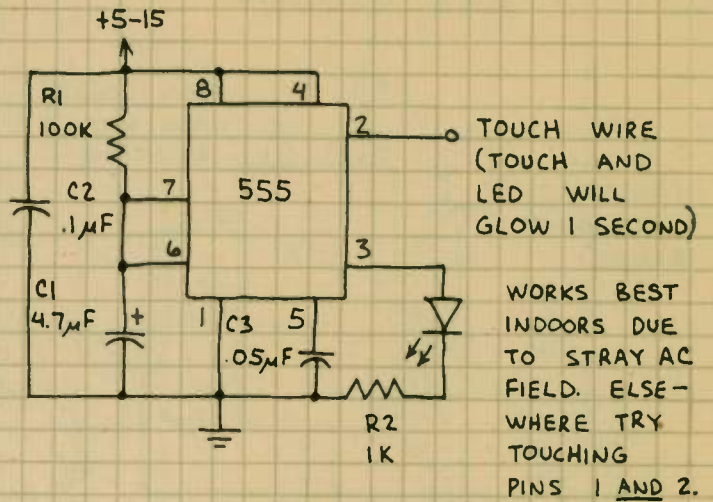 +5-15
R1
100K
C2
.1µF
C1
4.7µF
+
8
4
7
6
555
2
3
1
C3
5
.05µF
R2
1K
TOUCH WIRE
(TOUCH AND
LED WILL
GLOW 1 SECOND)
WORKS BEST
INDOORS DUE
TO STRAY AC
FIELD. ELSE-
WHERE TRY
TOUCHING
PINS 1 AND 2.